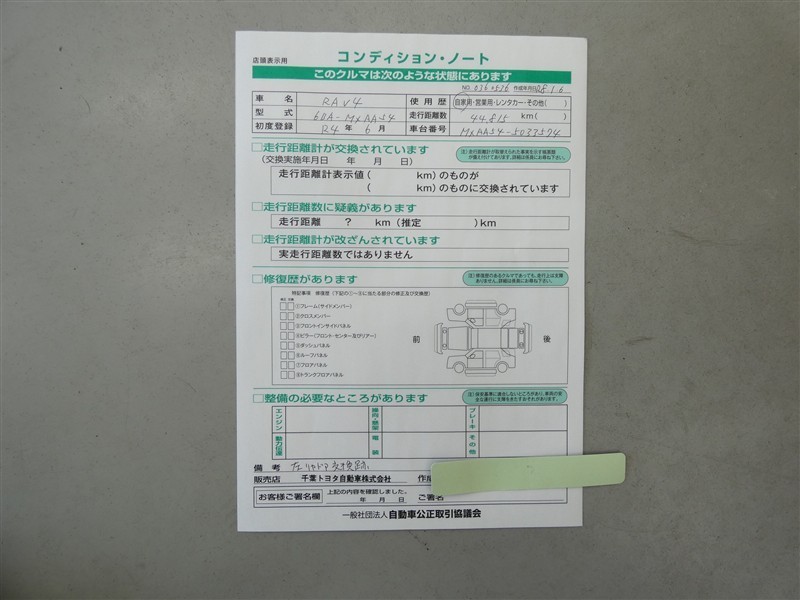 店頭表示用
コンディション・ノート
このクルマは次のような状態にあります
NO. 0360576 作成年月日 R8.1.6
車名 RAV4 使用歴 自家用・営業用・レンタカー・その他( )
型式 6BA-MXAA54 走行距離数 44,815 km( )
初度登録 R4年 6月 車台番号 MXAA54-5033574
□走行距離計が交換されています
(交換実施年月日 年 月 日)
走行距離計表示値 ( km) のものが
( km) のものに交換されています
□走行距離数に疑義があります
走行距離 ? km (推定 ) km
□走行距離計が改ざんされています
実走行距離数ではありません
□修復歴があります
特記事項 修復歴(下記の①~⑧に当たる部分の修正及び交換歴)
①フレーム(サイドメンバー)
②クロスメンバー
③フロントインサイドパネル
④ピラー(フロント・センター及びリアー)
⑤ダッシュパネル
⑥ルーフパネル
⑦フロアパネル
⑧トランクフロアパネル
前 後
□整備の必要なところがあります
エンジン ブレーキ
動力伝達 電装 その他
備考 左リヤドア交換跡
販売店 千葉トヨタ自動車株式会社
お客様ご署名欄 上記の内容を確認しました。
年 月 日 ご署名
一般社団法人 自動車公正取引協議会